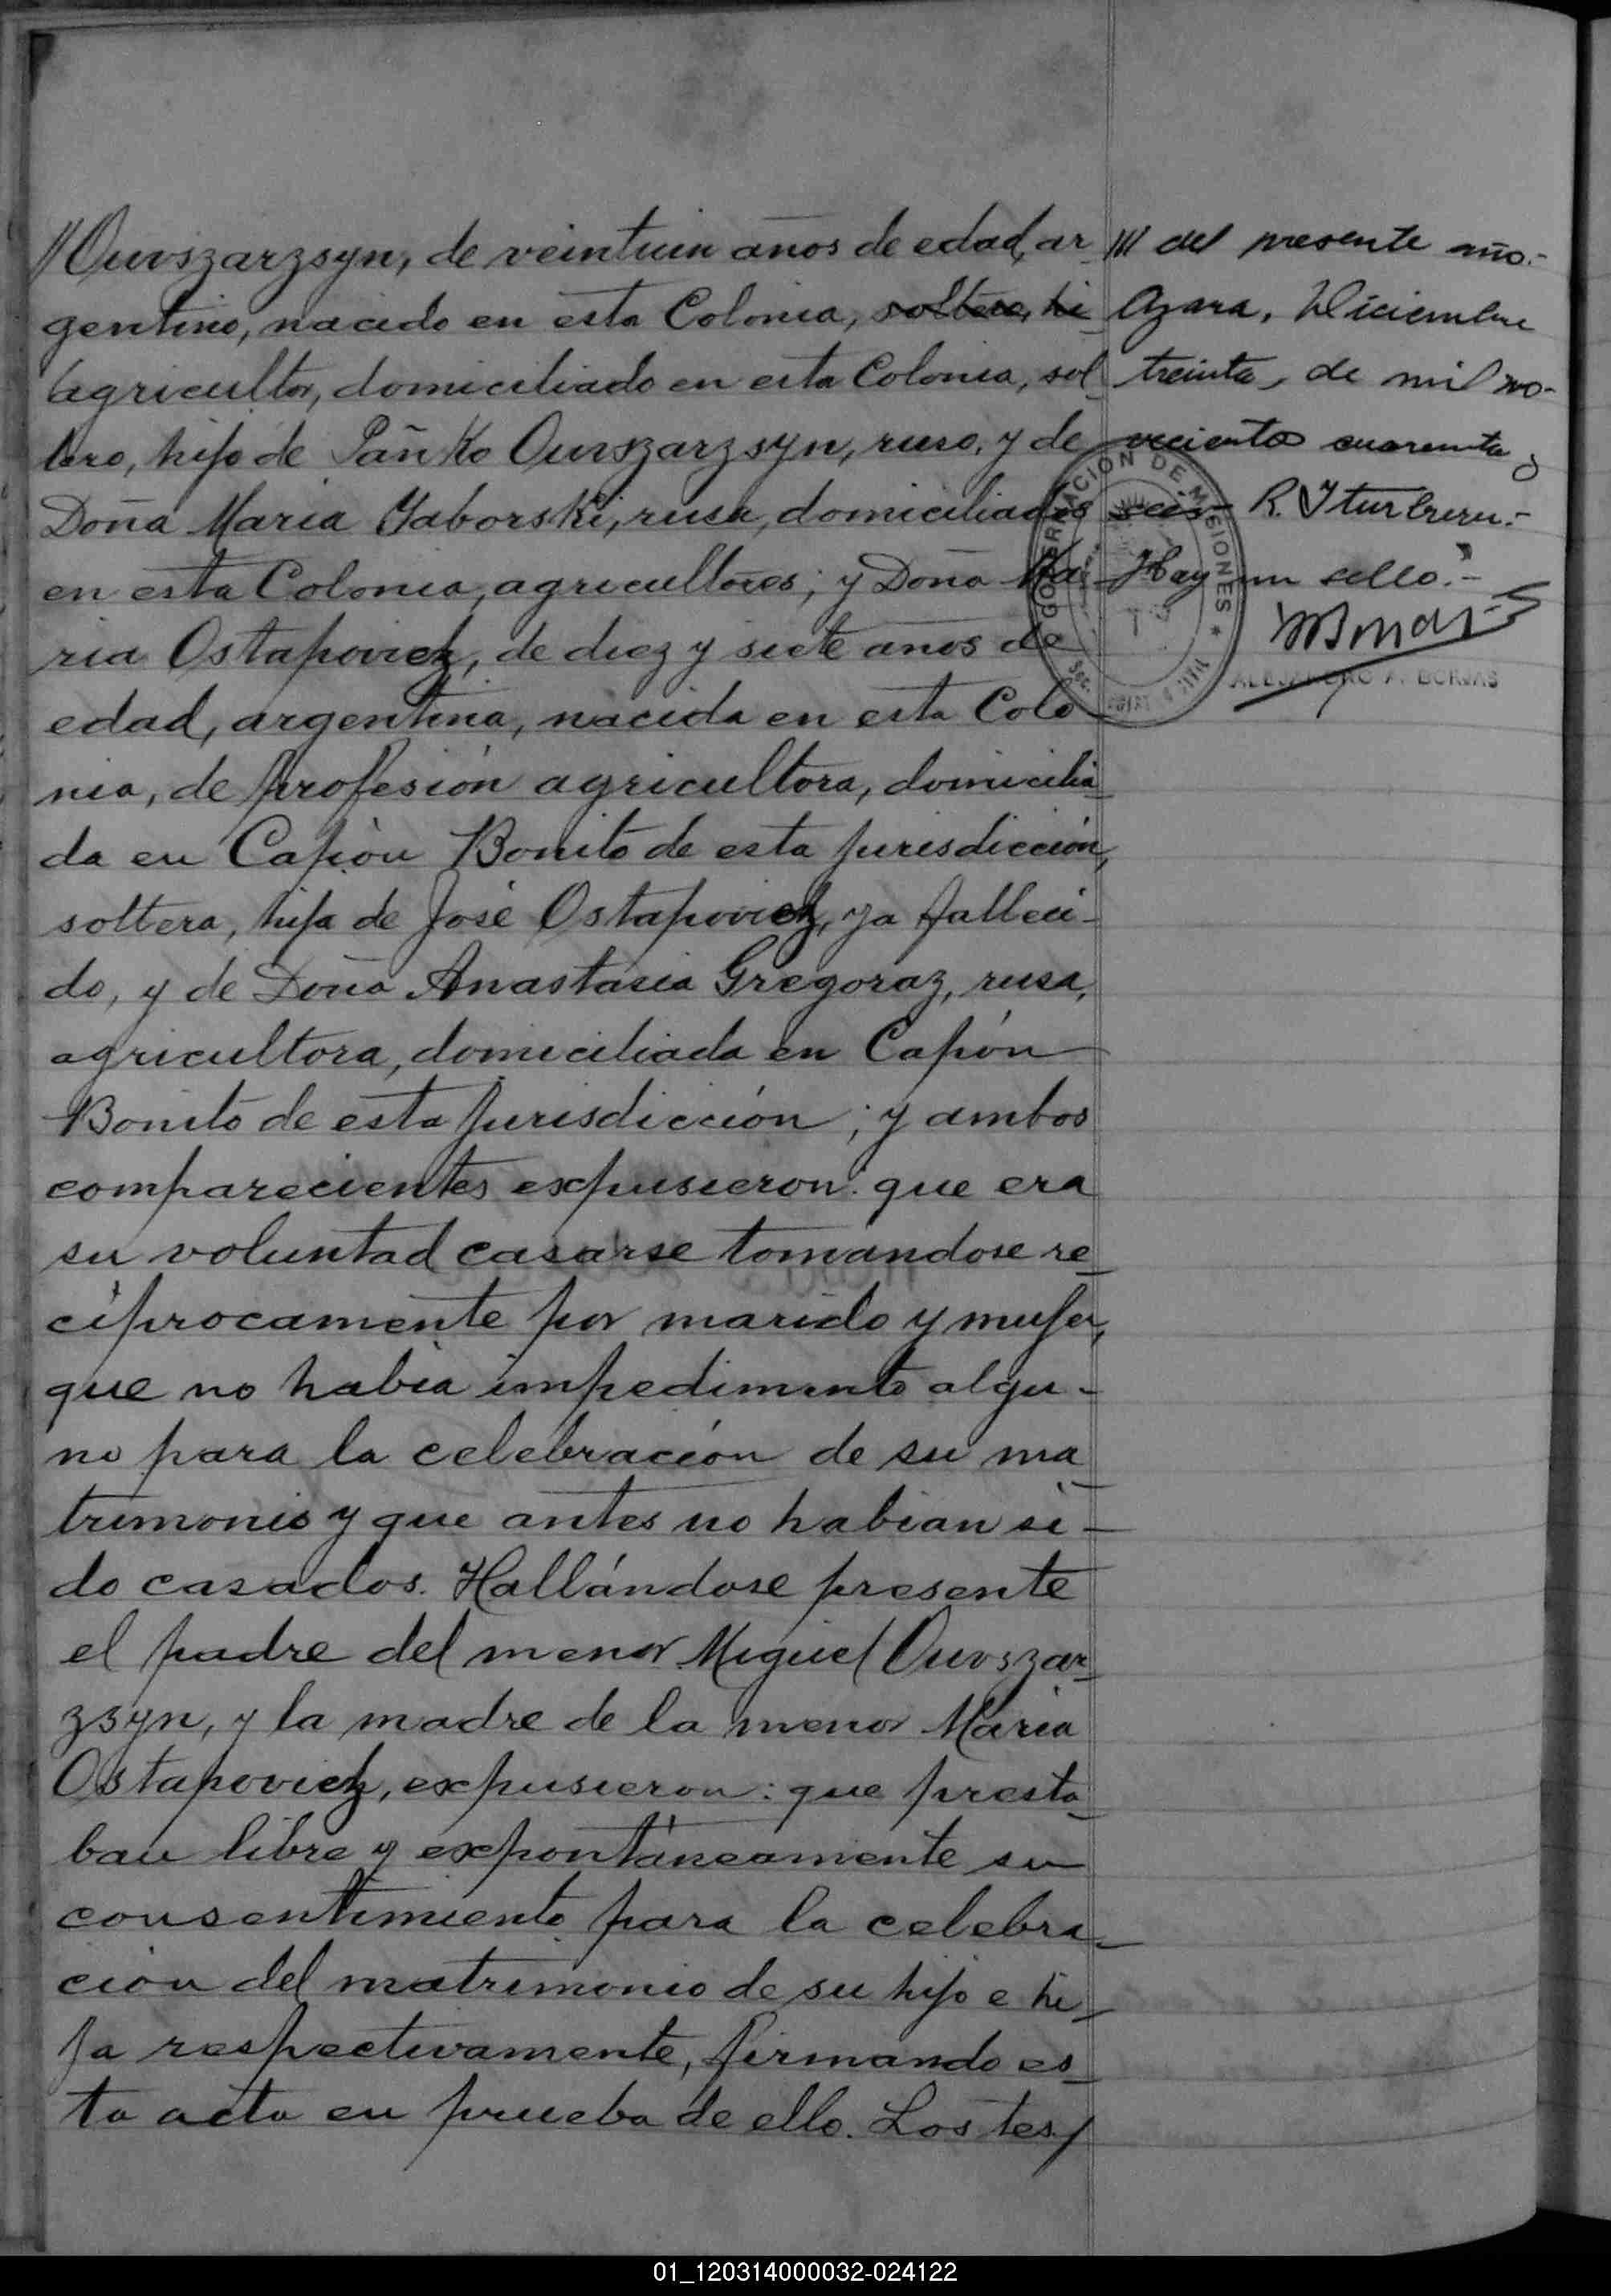 //Ouvszarzsyn, de veintiun años de edad, ar-
gentino, nacido en esta Colonia, soltero, hi-
agricultor, domiciliado en esta Colonia, sol-
tero, hijo de Pañko Ouvszarzsyn, ruso, y de
Doña Maria Yaborski, rusa, domiciliados
en esta Colonia, agricultores; y Doña Ma-
ria Ostapovich, de diez y siete años de
edad, argentina, nacida en esta Colo
nia, de profesión agricultora, domicilia-
da en Capón Bonito de esta jurisdicción,
soltera, hija de José Ostapovich, ya falleci-
do, y de Doña Anastasia Gregoraz, rusa,
agricultora, domiciliada en Capón
Bonito de esta jurisdicción; y ambos
comparecientes expusieron: que era
su voluntad casarse tomandose re-
ciprocamente por marido y mujer,
que no habia impedimento algu-
no para la celebración de su ma-
trimonio y que antes no habian si-
do casados. Hallándose presente
el padre del menor Miguel Ouvszar-
zsyn, y la madre de la menor Maria
Ostapovich, expusieron: que presta-
ban libre y expontáneamente su
consentimiento para la celebra-
ción del matrimonio de su hijo e hi-
ja respectivamente, firmando es-
ta acta en prueba de ello. Los tes/
/// del presente año.-
Azara, Diciembre
treinta, de mil no-
vecientos cuarenta y
seis- R. Iturbreru.-
Hay un sello.-
GOBERNACION DE MISIONES *
ALEJANDRO A. BORJAS
01_120314000032-024122